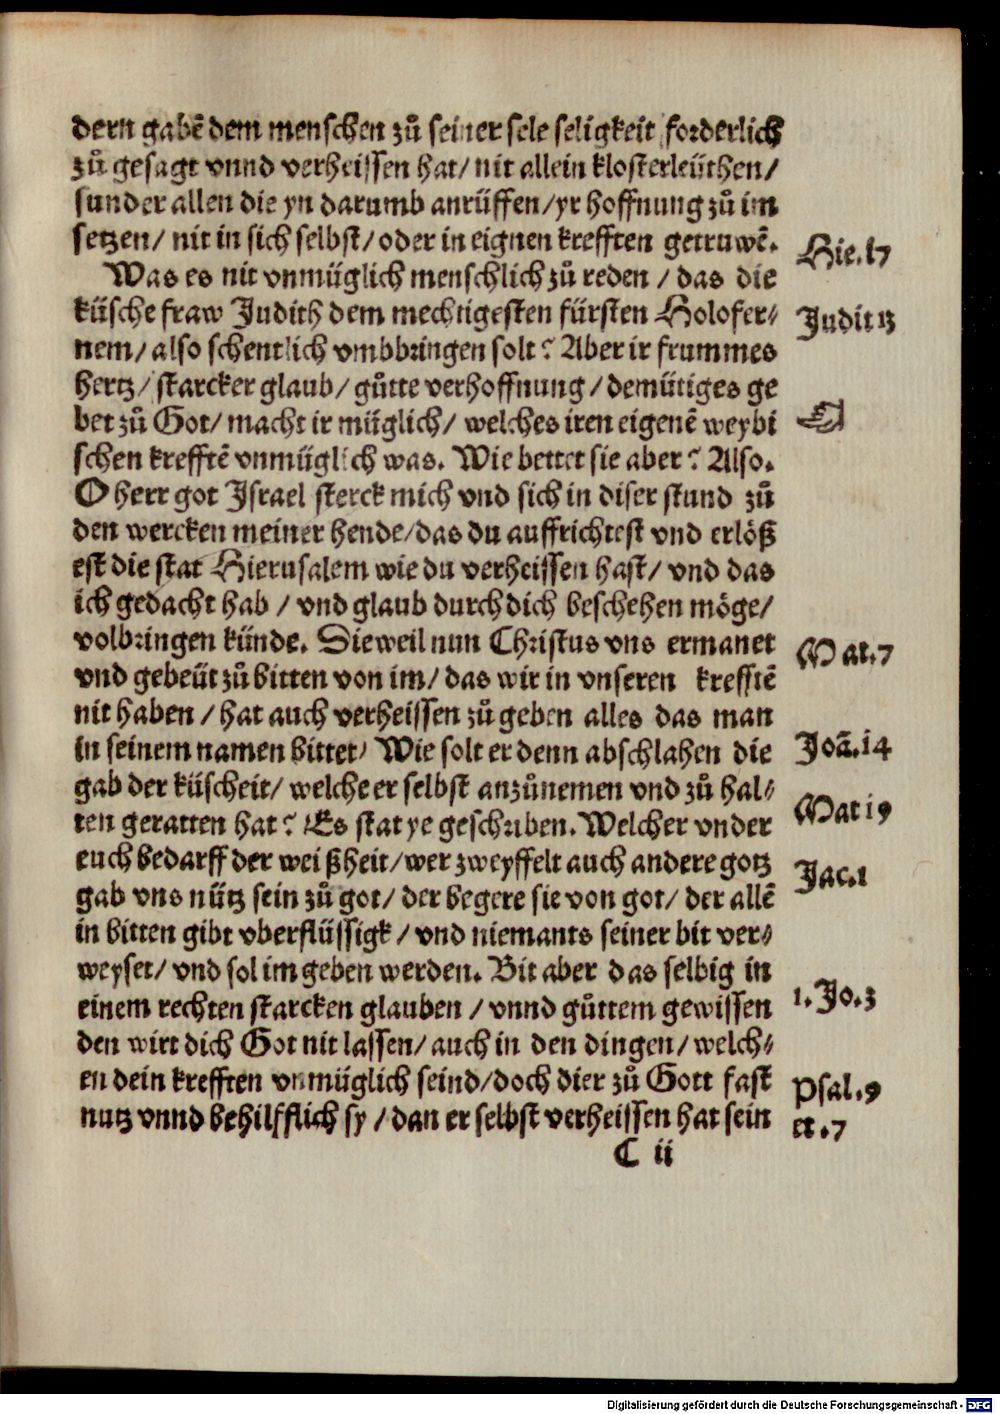 dern gabē dem menschen zů seiner sele seligkeit forderlich
zů gesagt vnnd verheissen hat/ nit allein klosterleüthen/
sunder allen die yn darumb anrüffen/ yr hoffnung zů im
setzen/ nit in sich selbst/ oder in eignen krefften getruwē.
Hie.17
Was es nit vnmüglich menschlich zů reden / das die
küsche fraw Judith dem mechtigesten fürsten Holofer⸗
Judit 13
nem/ also schentlich vmbbringen solt? Aber ir frummes
hertz/ starcker glaub/ gůtte verhoffnung / demütiges ge
bet zů Got/ macht ir müglich/ welches iren eigenē weybi
☞
schen krefftē vnmüglich was. Wie bettet sie aber? Also.
O herr got Israel sterck mich vnd sich in diser stund zů
den wercken meiner hende/ das du auffrichtest vnd erlöß
est die stat Hierusalem wie du verheissen hast/ vnd das
ich gedacht hab / vnd glaub durch dich beschehen möge/
volbringen künde. Dieweil nun Christus vns ermanet
Mat.7
vnd gebeüt zů bitten von im/ das wir in vnseren krefftē
nit haben / hat auch verheissen zů geben alles das man
in seinem namen bittet/ Wie solt er denn abschlahen die
Joā.14
gab der küscheit/ welche er selbst anzůnemen vnd zů hal⸗
ten geratten hat? Es stat ye geschriben. Welcher vnder
Mat 19
euch bedarff der weißheit/ wer zweyffelt auch andere gotz
Jac.1
gab vns nütz sein zů got/ der begere sie von got/ der allē
in bitten gibt vberflüssigk / vnd niemants seiner bit ver⸗
weyset/ vnd sol im geben werden. Bit aber das selbig in
einem rechten starcken glauben / vnnd gůttem gewissen
1.Jo.3
den wirt dich Got nit lassen/ auch in den dingen/ welch⸗
en dein krefften vnmüglich seind/ doch dier zů Gott fast
Psal.9
nutz vnnd behilfflich sy / dan er selbst verheissen hat sein
et .7
C ii
Digitalisierung gefördert durch die Deutsche Forschungsgemeinschaft - DFG